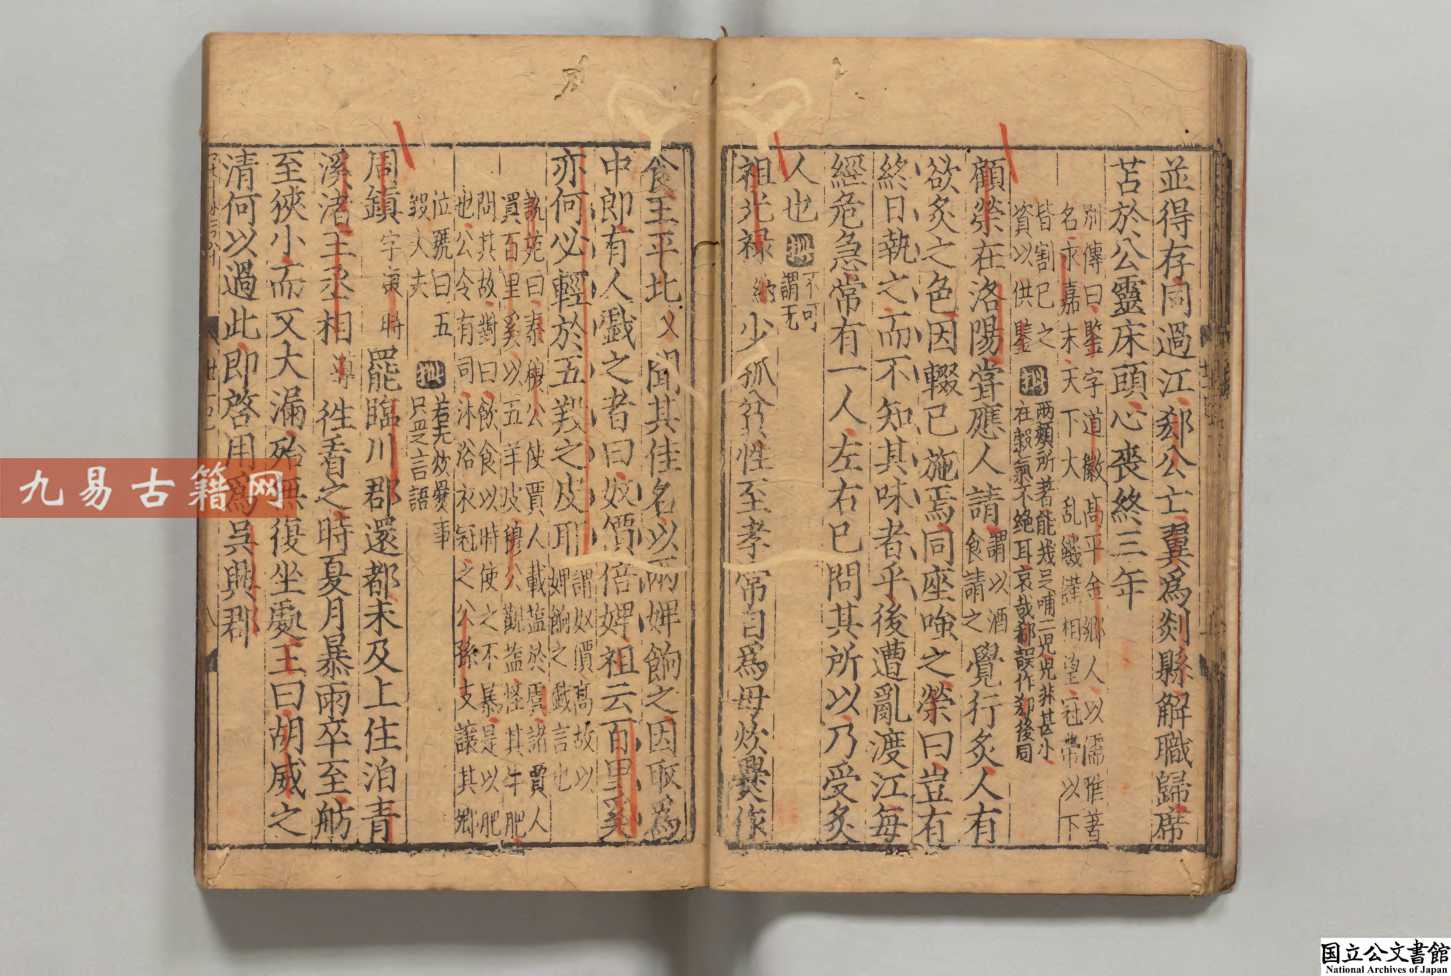 並得存同過江郗公亡翼為剡縣解職歸席
苫於公靈床頭心喪終三年
別傳曰鑒字道徽高平金鄉人以儒雅著
名永嘉末天下大亂饑饉相望冠帶以下
皆割己之
資以供鑒
批
兩頰所著能幾足哺二兒兒非甚小
在穀氣不絕耳哀哉郗誤作郄後同
顧榮在洛陽嘗應人請
謂以酒
食請之
覺行炙人有
欲炙之色因輟己施焉同座嗤之榮曰豈有
終日執之而不知其味者乎後遭亂渡江每
經危急常有一人左右已問其所以乃受炙
人也
批
不可
謂无
祖光祿
納
少孤貧性至孝常自為母炊爨作
食王平北乂聞其佳名以兩婢餉之因取為
中郎有人戲之者曰奴價倍婢祖云百里奚
亦何必輕於五羖之皮耶
謂奴價高故以
婢餉之戲言也
說苑曰秦穆公使賈人載鹽於虞諸賈人
買百里奚以五羊皮穆公觀鹽怪其牛肥
問其故對曰飲食以時使之不暴是以肥
也公令有司沐浴衣冠之公孫支讓其卿
位號曰五
羖大夫
批
若无炊爨事
只是言語
周鎮
字康時
罷臨川郡還都未及上住泊青
溪渚王丞相
導
往看之時夏月暴雨卒至舫
至狹小而又大漏殆無復坐處王曰胡威之
清何以過此即啓用為吳興郡
九易古籍网
国立公文書館
National Archives of Japan